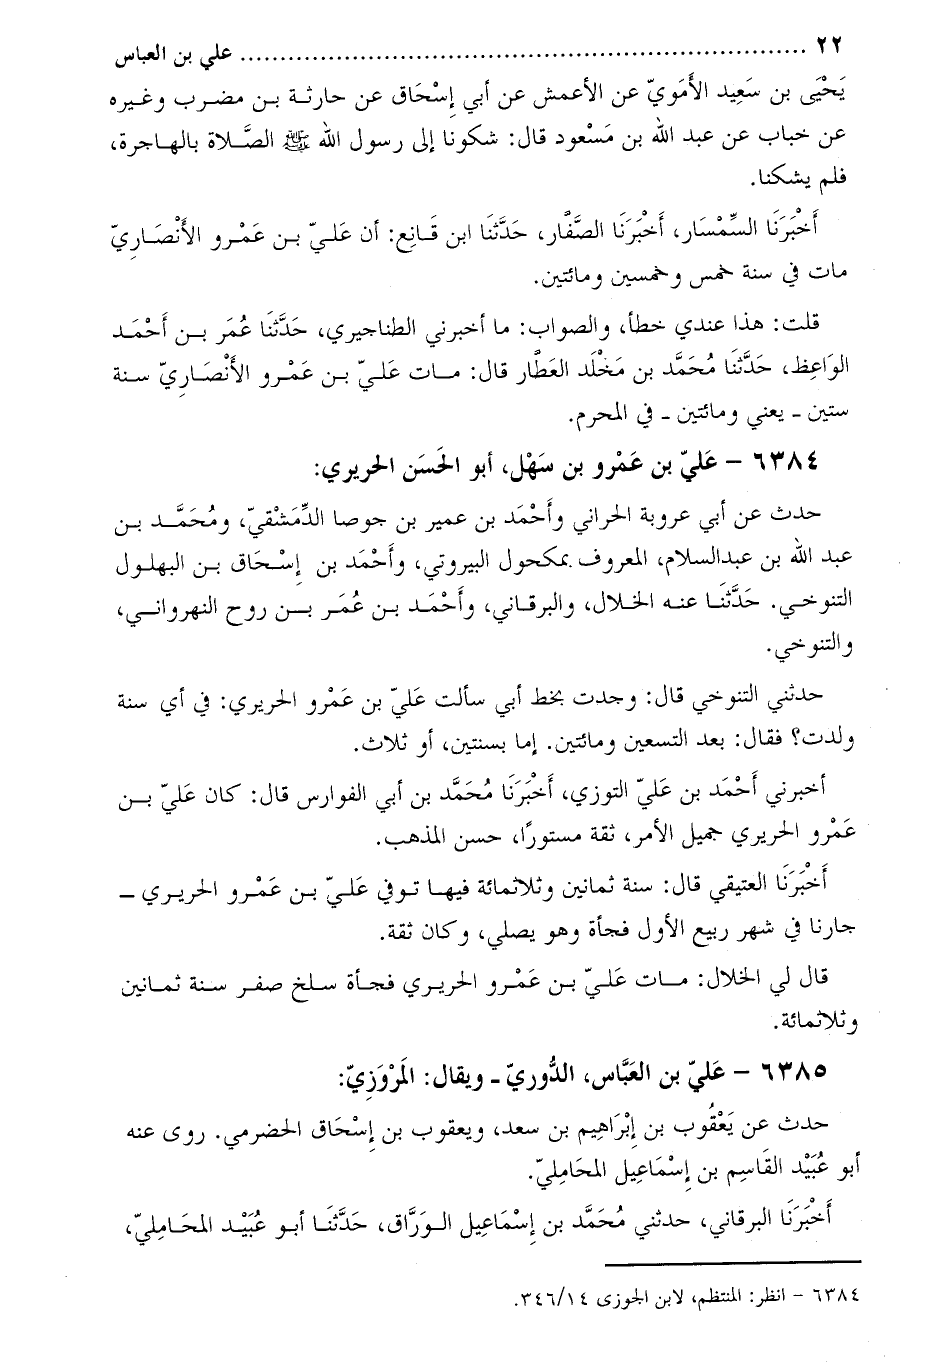 ٢٢ ........................................................................ علي بن العباس
يَحْيَى بن سَعِيد الأَمَويّ عن الأعمش عن أبي إِسْحَاق عن حارثة بن مضرب وغيره
عن خباب عن عبد الله بن مَسْعود قال: شكونا إلى رسول الله ﷺ الصَّلاة بالهاجرة،
فلم يشكنا.
أَخْبَرَنَا السِّمْسَار، أَخْبَرَنَا الصَّفَّار، حَدَّثَنَا ابن قَانِع: أن عَليّ بن عَمْرو الأَنْصَارِيّ
مات في سنة خمس وخمسين ومائتين.
قلت: هذا عندي خطأ، والصواب: ما أخبرني الطناجيري، حَدَّثَنَا عُمَر بن أَحْمَد
الوَاعِظ، حَدَّثَنَا مُحَمَّد بن مَخْلَد العَطَّار قال: مات عَليّ بن عَمْرو الأَنْصَارِيّ سنة
ستين ـ يعني ومائتين ـ في المحرم.
٦٣٨٤ – عَليّ بن عَمْرو بن سَهْل، أبو الحَسَن الحريري:
حدث عن أبي عروبة الحراني وأَحْمَد بن عمير بن جوصا الدِّمَشْقيّ، ومُحَمَّد بن
عبد الله بن عبدالسلام، المعروف بمكحول البيروتي، وأَحْمَد بن إِسْحَاق بن البهلول
التنوخي. حَدَّثَنَا عنه الخلال، والبرقاني، وأَحْمَد بن عُمَر بن روح النهرواني،
والتنوخي.
حدثني التنوخي قال: وجدت بخط أبي سألت عَليّ بن عَمْرو الحريري: في أي سنة
ولدت؟ فقال: بعد التسعين ومائتين. إما بسنتين، أو ثلاث.
أخبرني أَحْمَد بن عَليّ التوزي، أَخْبَرَنَا مُحَمَّد بن أبي الفوارس قال: كان عَليّ بن
عَمْرو الحريري جميل الأمر، ثقة مستورًا، حسن المذهب.
أَخْبَرَنَا العتيقي قال: سنة ثمانين وثلاثمائة فيها توفي عَليّ بن عَمْرو الحريري ـ
جارنا في شهر ربيع الأول فجأة وهو يصلي، وكان ثقة.
قال لي الخلال: مات عَليّ بن عَمْرو الحريري فجأة سلخ صفر سنة ثمانين
وثلاثمائة.
٦٣٨٥ – عَليّ بن العَبَّاس، الدُّوريّ ـ ويقال: المَرْوَزِيّ:
حدث عن يَعْقُوب بن إِبْرَاهِيم بن سعد، ويعقوب بن إِسْحَاق الحضرمي. روى عنه
أبو عُبَيْد القَاسِم بن إِسْمَاعِيل المحَامليّ.
أَخْبَرَنَا البرقاني، حدثني مُحَمَّد بن إِسْمَاعِيل الوَرَّاق، حَدَّثَنَا أبو عُبَيْد المحَامليّ،
٦٣٨٤ – انظر: المنتظم، لابن الجوزى ٣٤٦/١٤.